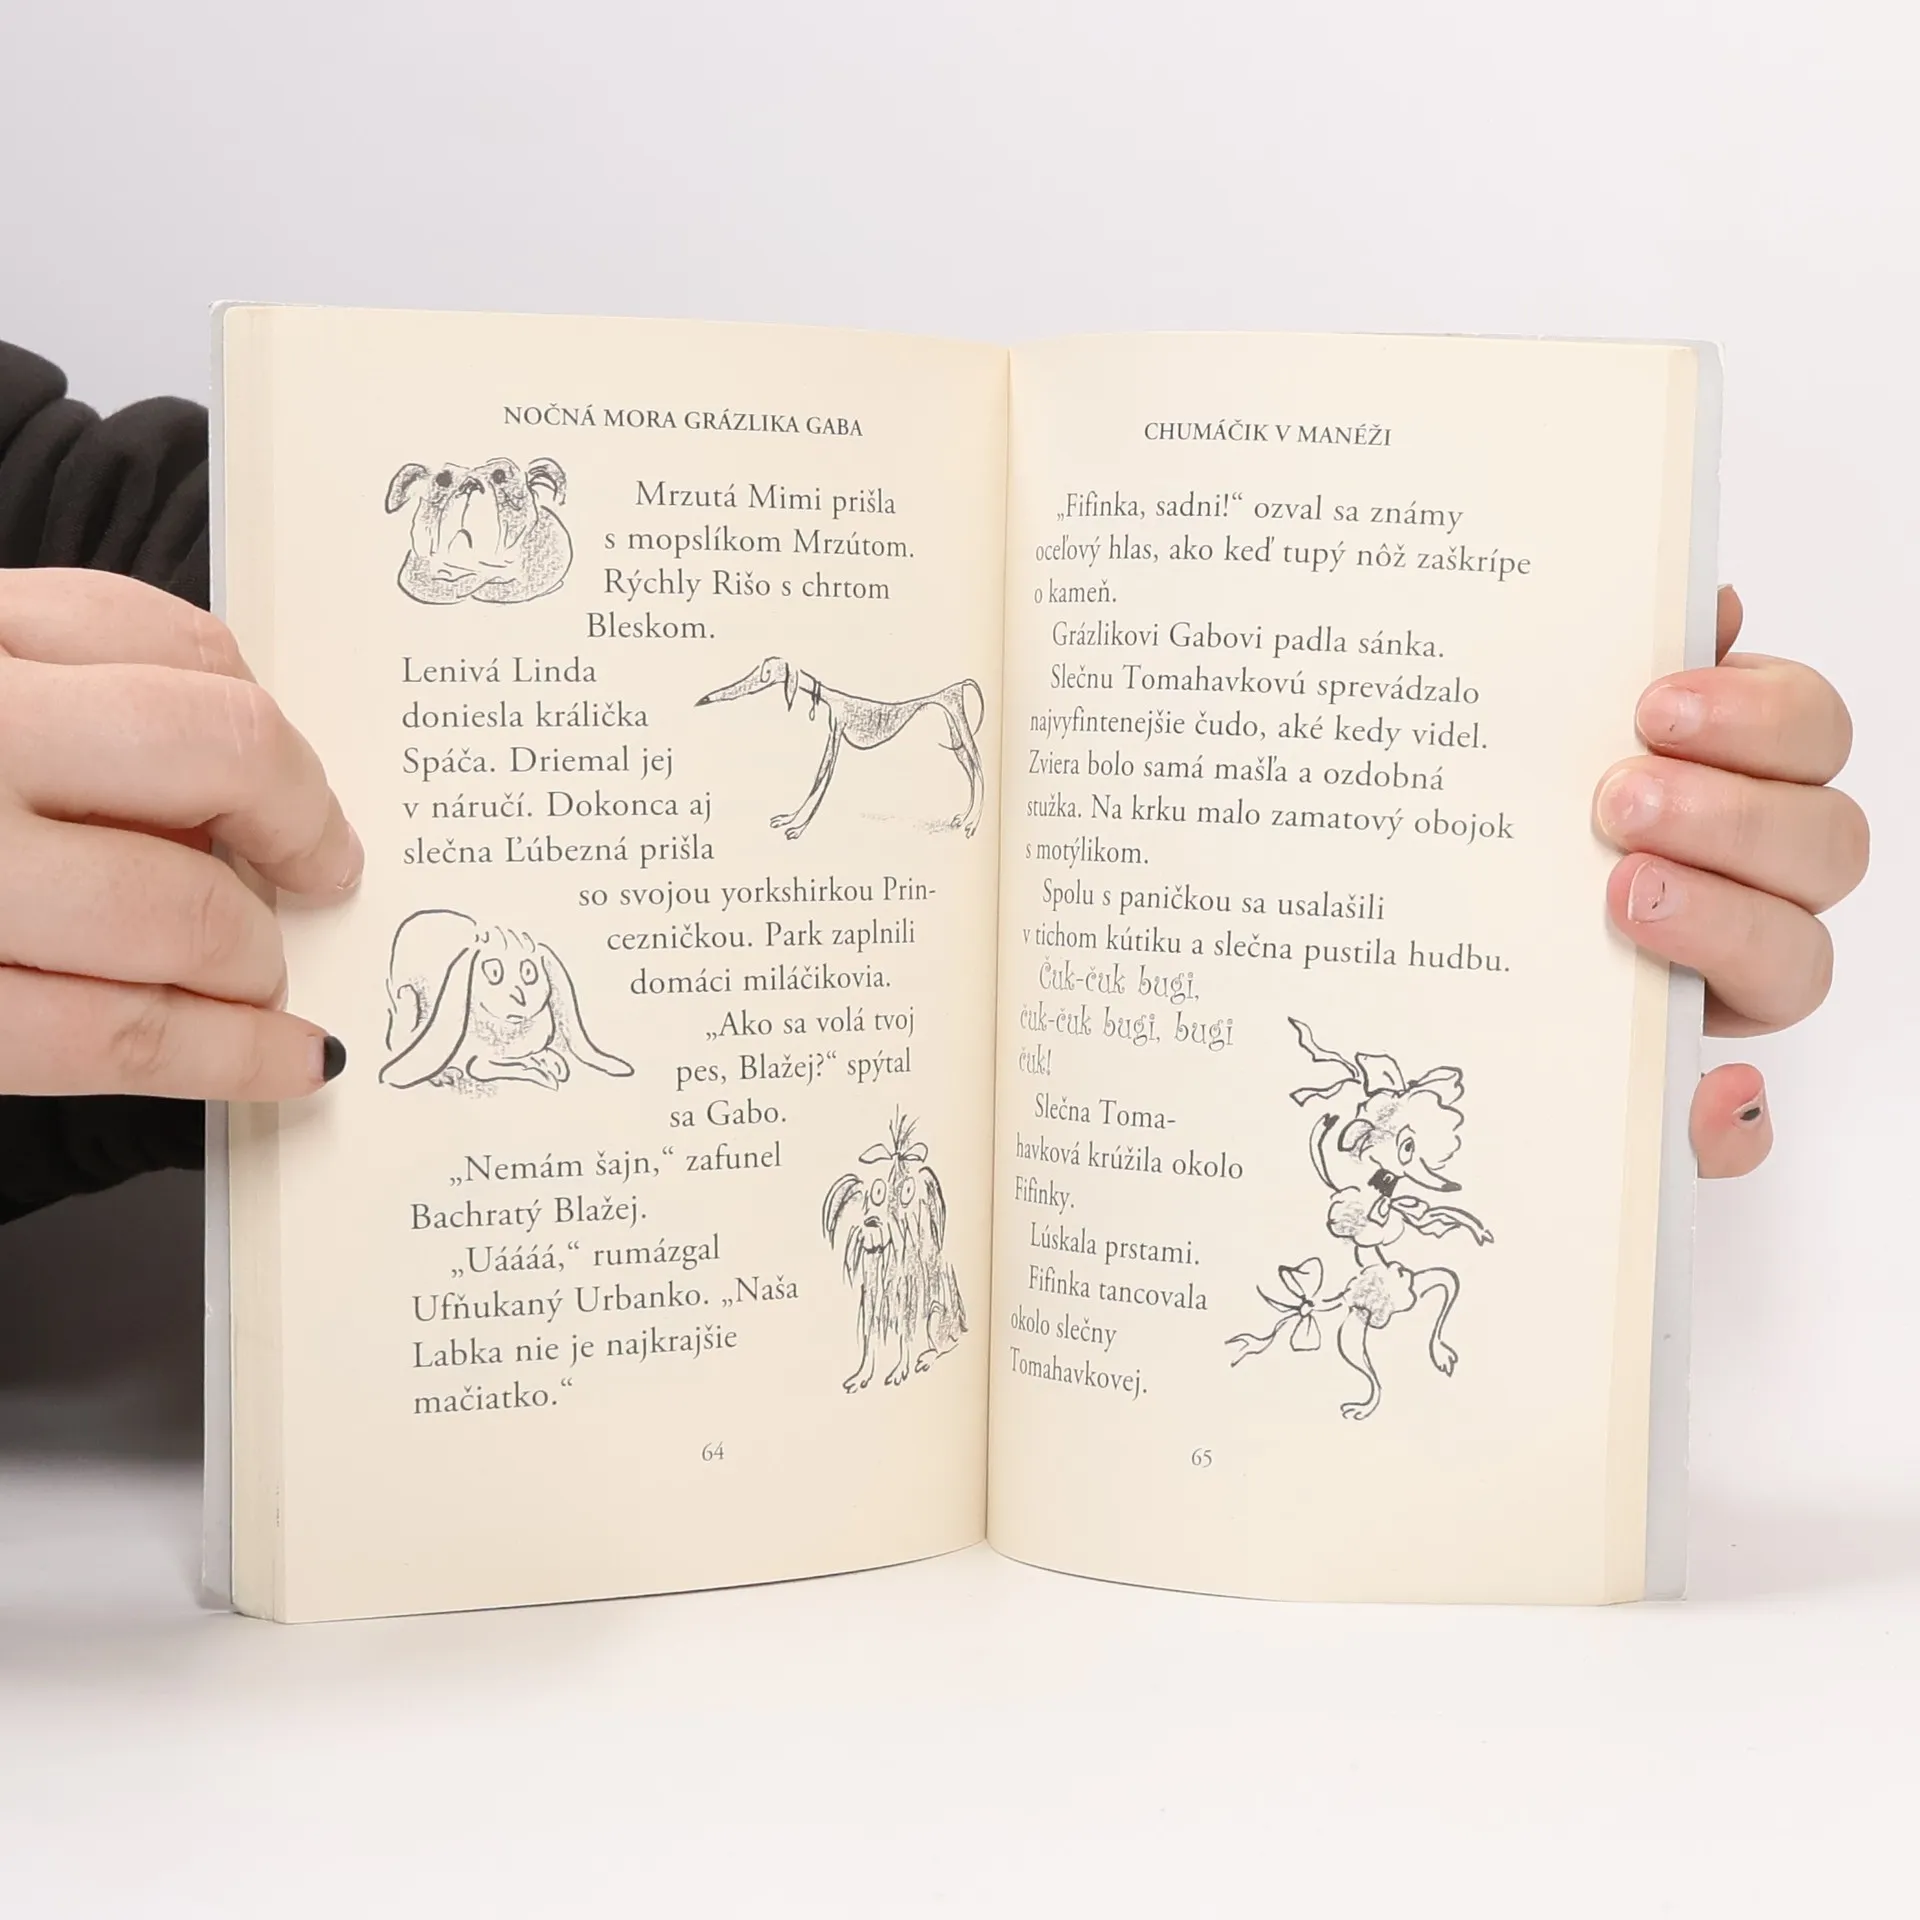 NOČNÁ MORA GRÁZLIKA GABA
Mrzutá Mimi prišla
s mopslíkom Mrzútom.
Rýchly Rišo s chrtom
Bleskom.
Lenivá Linda
doniesla králička
Spáča. Driemal jej
v náručí. Dokonca aj
slečna Ľúbezná prišla
so svojou yorkshirkou Prin-
cezničkou. Park zaplnili
domáci miláčikovia.
„Ako sa volá tvoj
pes, Blažej?“ spýtal
sa Gabo.
„Nemám šajn,“ zafunel
Bachratý Blažej.
„Uáááá,“ rumázgal
Ufňukaný Urbanko. „Naša
Labka nie je najkrajšie
mačiatko.“
64
CHUMÁČIK V MANÉŽI
„Fifinka, sadni!“ ozval sa známy
oceľový hlas, ako keď tupý nôž zaškrípe
o kameň.
Grázlikovi Gabovi padla sánka.
Slečnu Tomahavkovú sprevádzalo
najvyfintenejšie čudo, aké kedy videl.
Zviera bolo samá mašľa a ozdobná
stužka. Na krku malo zamatový obojok
s motýlikom.
Spolu s paničkou sa usalašili
v tichom kútiku a slečna pustila hudbu.
Čuk-čuk bugi,
čuk-čuk bugi, bugi
čuk!
Slečna Toma-
havková krúžila okolo
Fifinky.
Lúskala prstami.
Fifinka tancovala
okolo slečny
Tomahavkovej.
65